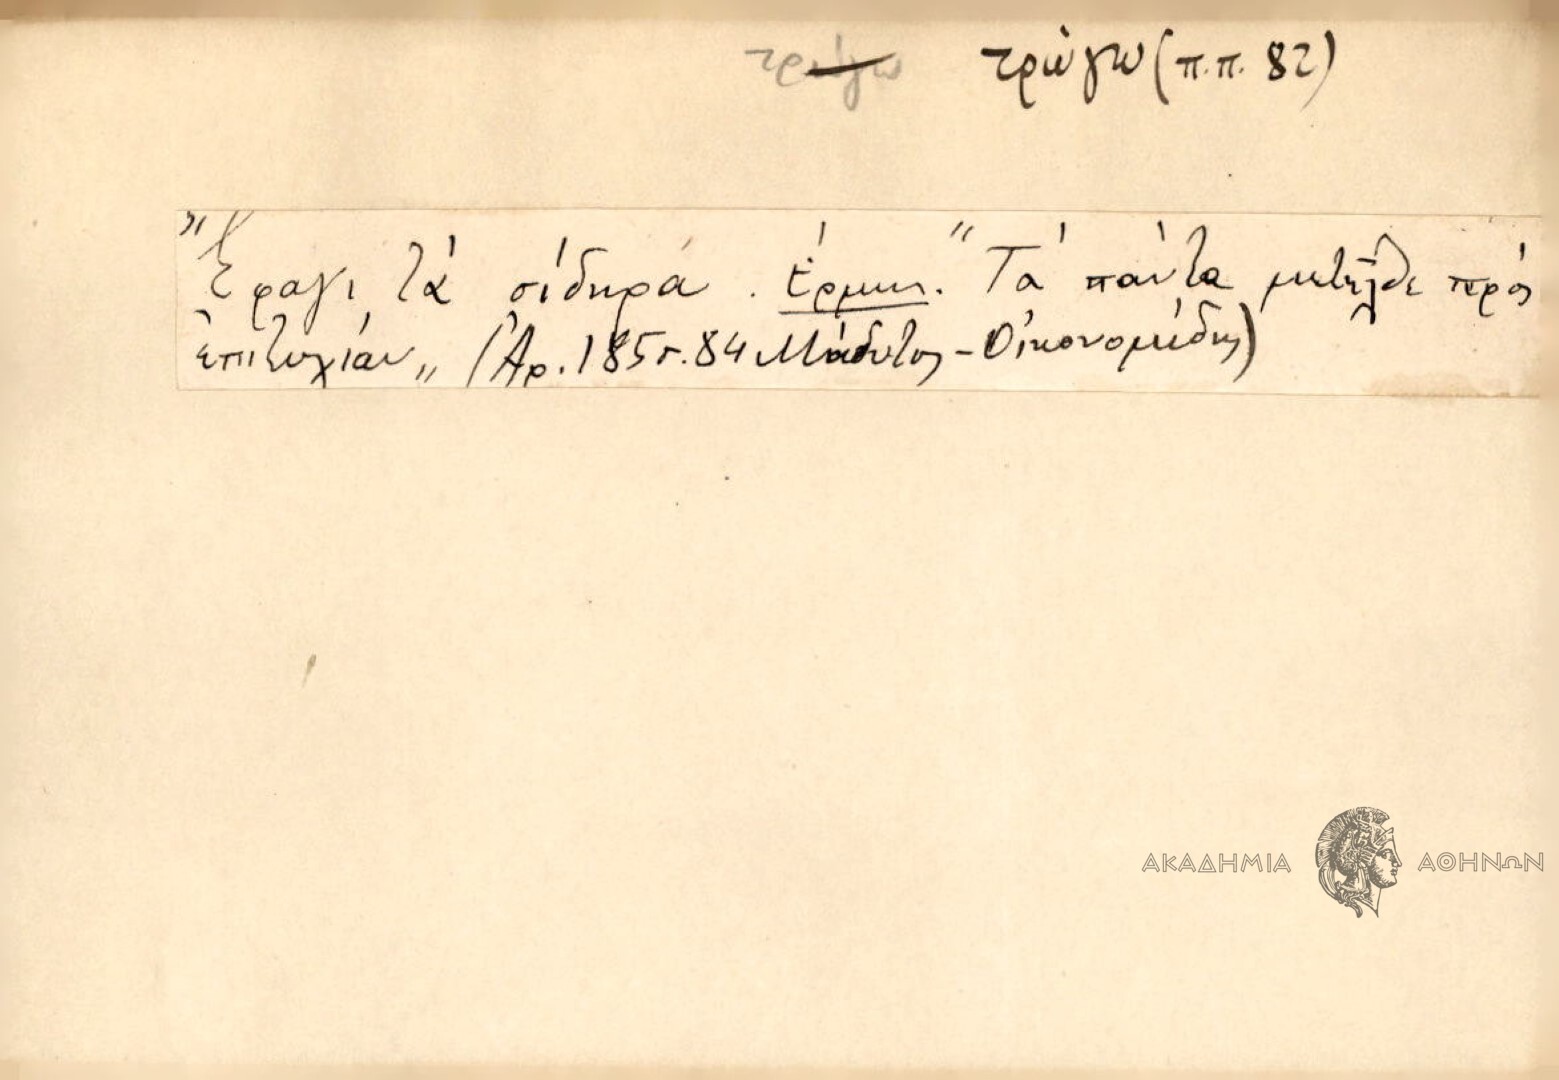 τρώγω τρώγω (π.π. 82)
"Έφαγι τά σίδηρα. Ερμην. "Τά πάντα μετήλθε πρός
ἐπιτυχίαν" (Ἀρ. 185 σ. 84 Μάδυτος - Οἰκονομίδης)
ΑΚΑΔΗΜΙΑ ΑΘΗΝΩΝ